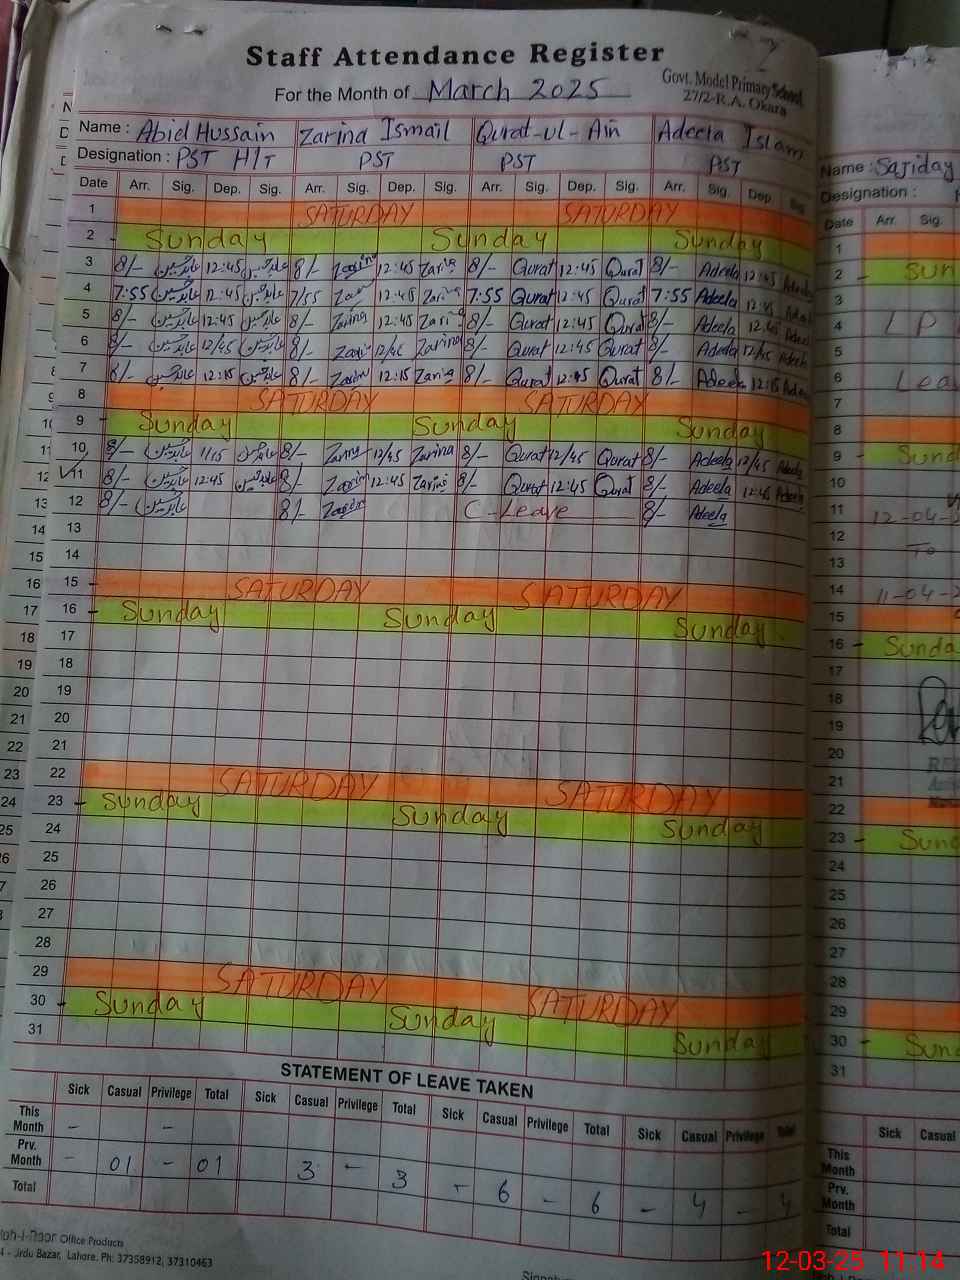 Staff Attendance Register
For the Month of March 2025
Govt. Model Primary School
27/2-R.A. Okara
Name : Abid Hussain Zarina Ismail Qurat-ul-Ain Adeela Islam
Designation : PST H/T PST PST PST
Date Arr. Sig. Dep. Sig. Arr. Sig. Dep. Sig. Arr. Sig. Dep. Sig. Arr. Sig. Dep Sig
1 SATURDAY SATURDAY
2 Sunday Sunday Sunday
3 8/- عابد حسین 12:45 عابد حسین 8/- Zarina 12:45 Zarina 8/- Qurat 12:45 Qurat 8/- Adeela 12:45 Adeela
4 7:55 عابد حسین 12:45 عابد حسین 7/55 12:45 7:55 Qurat 12:45 Qurat 7:55 Adeela 12:45
5 8/- عابد حسین 12:45 عابد حسین 8/- Zarina 12:45 Zarina 8/- Qurat 12:45 Qurat 8/- Adeela 12:45 Adeela
6 8/- عابد حسین 12/45 عابد حسین 8/- Zarina 12/45 Zarina 8/- Qurat 12:45 Qurat 8/- Adeela 12/45 Adeela
7 8/- عابد حسین 12:15 عابد حسین 8/- Zarina 12:15 Zarina 8/- Qurat 12:15 Qurat 8/- Adeela 12:15
8 SATURDAY SATURDAY
9 Sunday Sunday Sunday
10 8/- عابد حسین 1/15 عابد حسین 8/- Zarina 12/45 Zarina 8/- Qurat 12/45 Qurat 8/- Adeela 12/45 Adeela
11 8/- عابد حسین 12:45 عابد حسین 8/- Zarina 12:45 Zarina 8/- Qurat 12:45 Qurat 8/- Adeela 12:45 Adeela
12 8/- عابد حسین 8/- Zarina C-Leave 8/- Adeela
13
14
15 SATURDAY SATURDAY
16 Sunday Sunday Sunday
17
18
19
20
21
22 SATURDAY SATURDAY
23 Sunday Sunday Sunday
24
25
26
27
28
29 SATURDAY SATURDAY
30 Sunday Sunday Sunday
31
STATEMENT OF LEAVE TAKEN
Sick Casual Privilege Total Sick Casual Privilege Total Sick Casual Privilege Total Sick Casual Privilege Total
This Month - -
Prv. Month - 01 - 01 3 - 3 - 6 - 6 - 4 - 4
Total
Office Products
Urdu Bazar, Lahore. Ph: 37358912, 37310463
Name :
Designation :
Date Arr. Sig.
1
2 Sun
3
4 L P
5
6 Lea
7
8
9 Sund
10
11 12-04-2
12 To
13
14 11-04-2
15
16 Sunda
17
18
19
20
21
22
23 Sund
24
25
26
27
28
29
30 Sund
31
Sick Casual
This Month
Prv. Month
Total
12-03-25 11:14